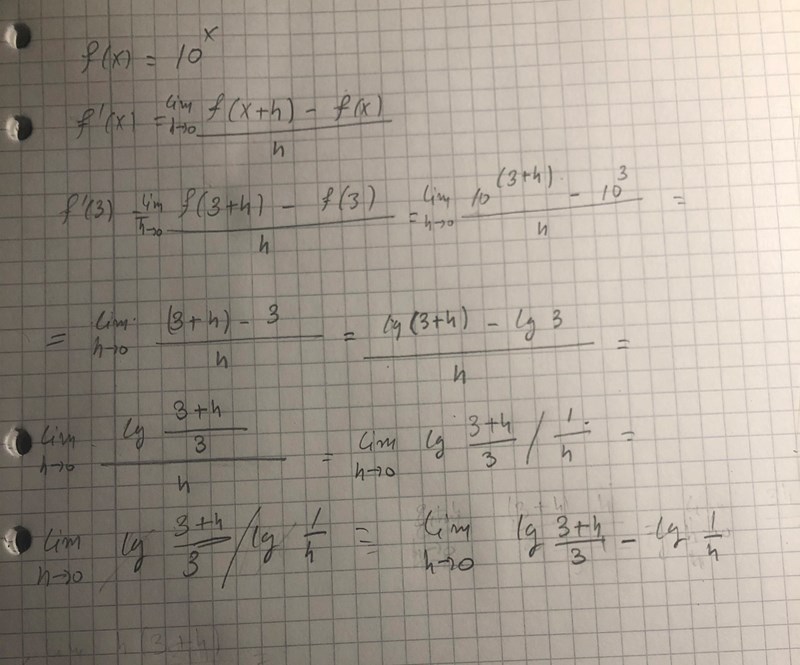 f(x) = 10^x
f'(x) = lim h→0 (f(x+h) - f(x)) / h
f'(3) lim h→0 (f(3+h) - f(3)) / h = lim h→0 (10^(3+h) - 10^3) / h =
= lim h→0 ((3+h) - 3) / h = (lg(3+h) - lg 3) / h =
lim h→0 (lg (3+h)/3) / h = lim h→0 lg (3+h)/3 / 1/h =
lim h→0 lg (3+h)/3 / lg 1/h = lim h→0 lg (3+h)/3 - lg 1/h